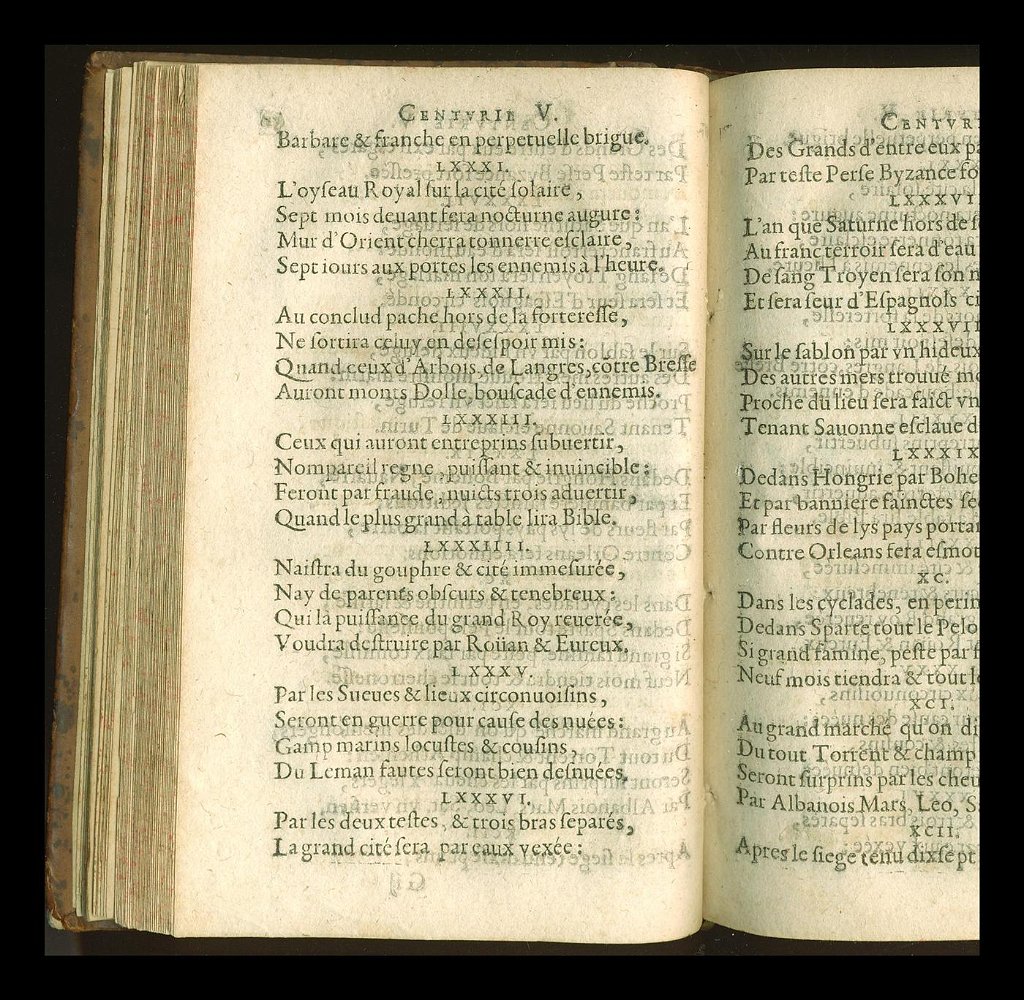 CENTVRIE V.
Barbare & franche en perpetuelle brigue.
LXXXI.
L'oyſeau Royal ſur la cité ſolaire,
Sept mois deuant fera nocturne augure:
Mur d'Orient cherra tonnerre eſclaire,
Sept iours aux portes les ennemis à l'heure.
LXXXII.
Au conclud pache hors de la fortereſſe,
Ne ſortira celuy en deſeſpoir mis:
Quand ceux d'Arbois, de Langres, cõtre Breſſe
Auront monts Dolle, bouſcade d'ennemis.
LXXXIII.
Ceux qui auront entreprins ſubuertir,
Nompareil regne, puiſſant & inuincible:
Feront par fraude, nuicts trois aduertir,
Quand le plus grand à table lira Bible.
LXXXIIII.
Naiſtra du gouphre & cité immeſurée,
Nay de parents obſcurs & tenebreux:
Qui la puiſſance du grand Roy reuerée,
Voudra deſtruire par Roüan & Eureux.
LXXXV.
Par les Sueues & lieux circonuoiſins,
Seront en guerre pour cauſe des nuées:
Gamp marins locuſtes & couſins,
Du Leman fautes ſeront bien deſnuées.
LXXXVI.
Par les deux teſtes, & trois bras ſeparés,
La grand cité ſera par eaux vexée:
CENTVR
Des Grands d'entre eux p
Par teſte Perſe Byzance fo
LXXXVI
L'an que Saturne hors de ſ
Au franc terroir ſera d'eau
De ſang Troyen ſera ſon
Et ſera ſeur d'Eſpagnols
LXXXVII
Sur le ſablon par vn hideux
Des autres mers trouué m
Proche du lieu ſera faict vn
Tenant Sauonne eſclaue d
LXXXIX
Dedans Hongrie par Bohe
Et par banniere fainctes
Par fleurs de lys pays porta
Contre Orleans fera eſmot
XC.
Dans les cyclades, en perin
Dedans Sparte tout le Pelo
Si grand famine, peſte par f
Neuf mois tiendra & tout le
XCI.
Au grand marché qu'on di
Du tout Torrent & champ
Seront ſurprins par les cheu
Par Albanois Mars, Leo, S
XCII.
Apres le ſiege tenu dixſept